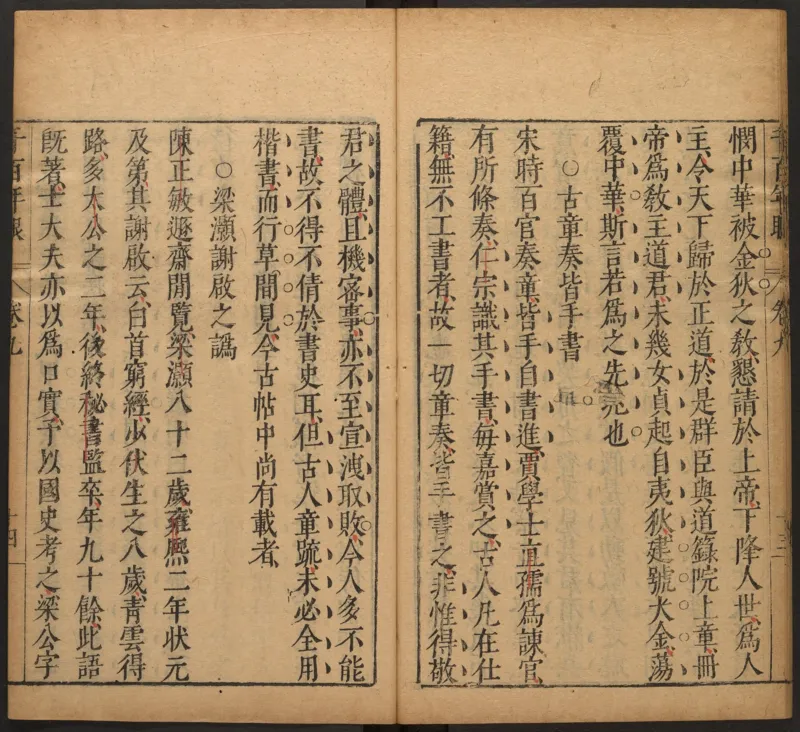 千百年眼 卷九 十三
憫中華被金狄之敎懇請於上帝下降人世爲人
主令天下歸於正道於是群臣與道籙院上章冊
帝爲敎主道君未幾女貞起自夷狄建號大金蕩
覆中華斯言若爲之先兆也
○古章奏皆手書
宋時百官奏章皆手自書進賈學士直孺爲諫官
有所條奏仁宗識其手書每嘉賞之古人凡在仕
籍無不工書者故一切章奏皆手書之非惟得敬
君之體且機密事亦不至宣洩取敗今人多不能
書故不得不倩於書史耳但古人章疏未必全用
楷書而行草間見今古帖中尚有載者
○梁灝謝啟之譌
陳正敏遯齋閒覽梁灝八十二歲雍熙二年状元
及第其謝啟云白首窮經少伏生之八歲青雲得
路多太公之二年後終秘書監卒年九十餘此語
旣著士大夫亦以爲口實予以國史考之梁公字
千百年眼 卷九 十四